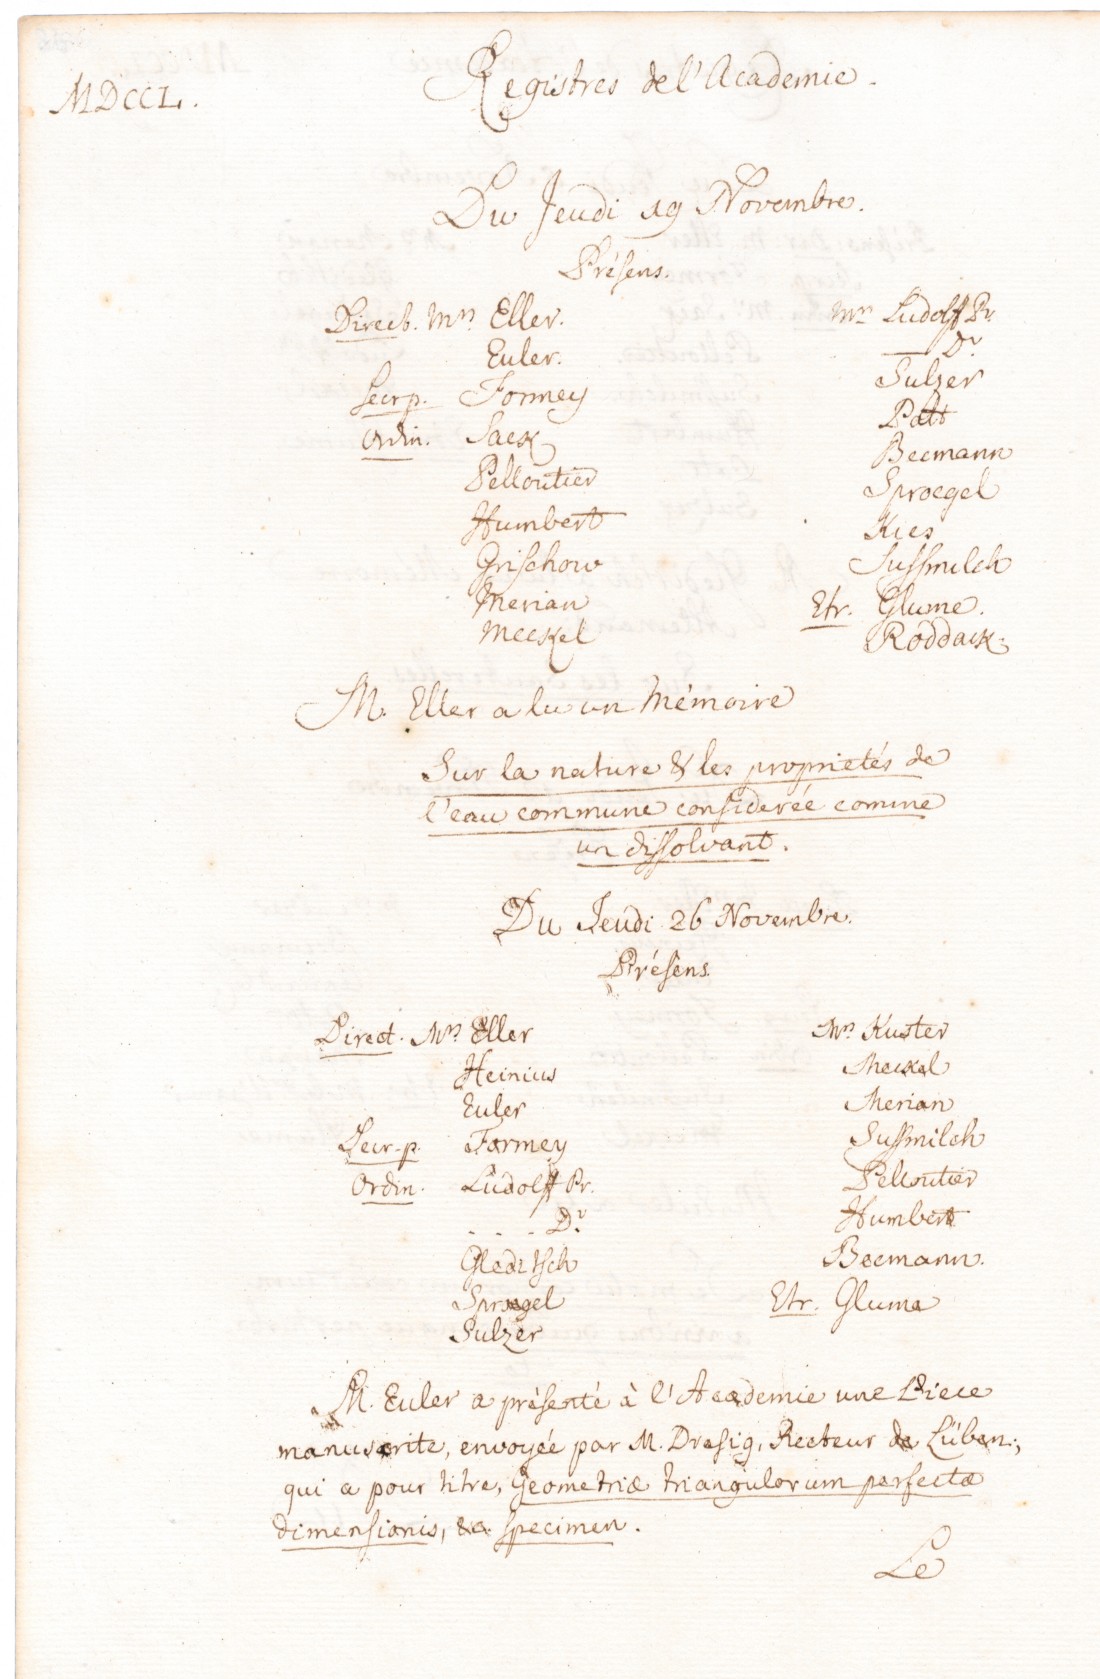 MDCCL.
Registres de l'Academie.
Du Jeudi 19 Novembre.
Présens.
Direct. Mrs Eller.
Euler.
Secr p. Formey
Ordin. Sack
Pelloutier
Humbert
Grischow
Merian
Meckel
Mrs Ludolff Pr.
— Dr
Sulzer
Pott
Becmann
Sproegel
Kies
Sussmilch
Etr. Glume.
Roddack.
M. Eller a lu un Mémoire
Sur la nature & les proprietés de
l'eau commune considerée comme
un dissolvant.
Du Jeudi 26 Novembre.
Présens.
Direct. Mrs Eller
Heinius
Euler
Secr. p. Formey
Ordin. Ludolff Pr.
. . . Dr
Gleditsch
Sproegel
Sulzer
Mrs Kuster
Meckel
Merian
Sussmilch
Pelloutier
Humbert
Becmann.
Etr. Glume
M. Euler a présenté à l'Academie une Piece
manuscrite, envoyée par M. Dresig, Recteur de Lüben,
qui a pour titre, Geometriæ triangulorum perfectæ
dimensionis, &a specimen.
Le